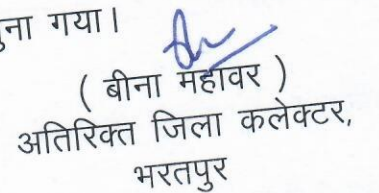 ना गया।
( बीना महावर )
अतिरिक्त जिला कलेक्टर,
भरतपुर